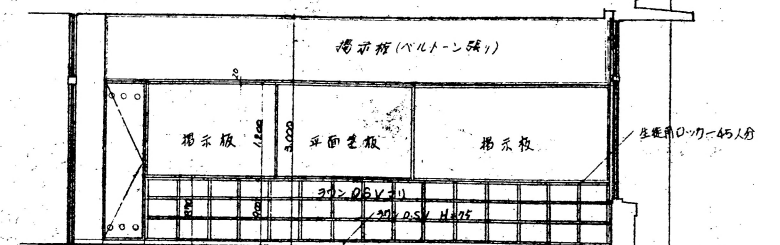 掲示板(ベルトーン張り)
20
掲示板
1,200
3,000
平面黒板
掲示板
生徒用ロッカー45人分
ラワンOSVヌリ
900
ラワンOSV H=75